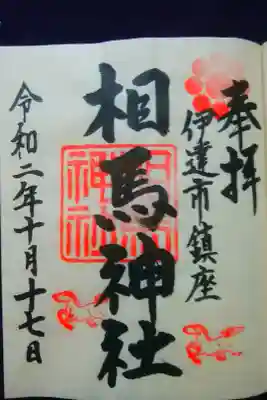 奉拝
伊達市鎮座
相馬神社
令和二年十月十七日